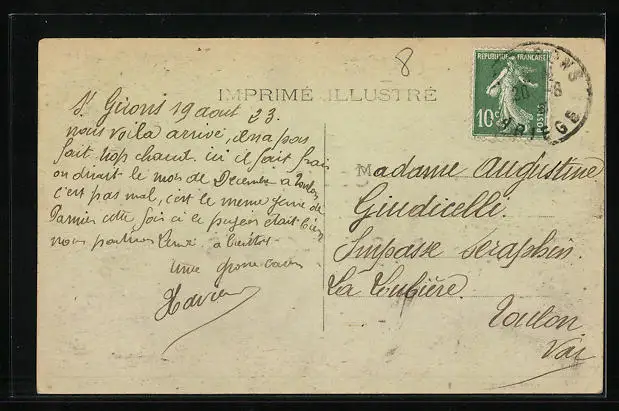 8
REPUBLIQUE FRANÇAISE
10c
POSTES
20 -8
ARIEGE
IMPRIMÉ ILLUSTRÉ
St Girons 19 aout 23.
nous voila arrivé, il n'a pas
fait trop chaud. ici il fait frais
on dirait le mois de Decembre a Toulon
c'est pas mal, c'est le meme genre de
Pamier cette fois ci le
nous a bientot.
une grosse
Xavier
Madame Augustine
Giudicelli.
Impasse Seraphin.
La Loubière.
Toulon
Var